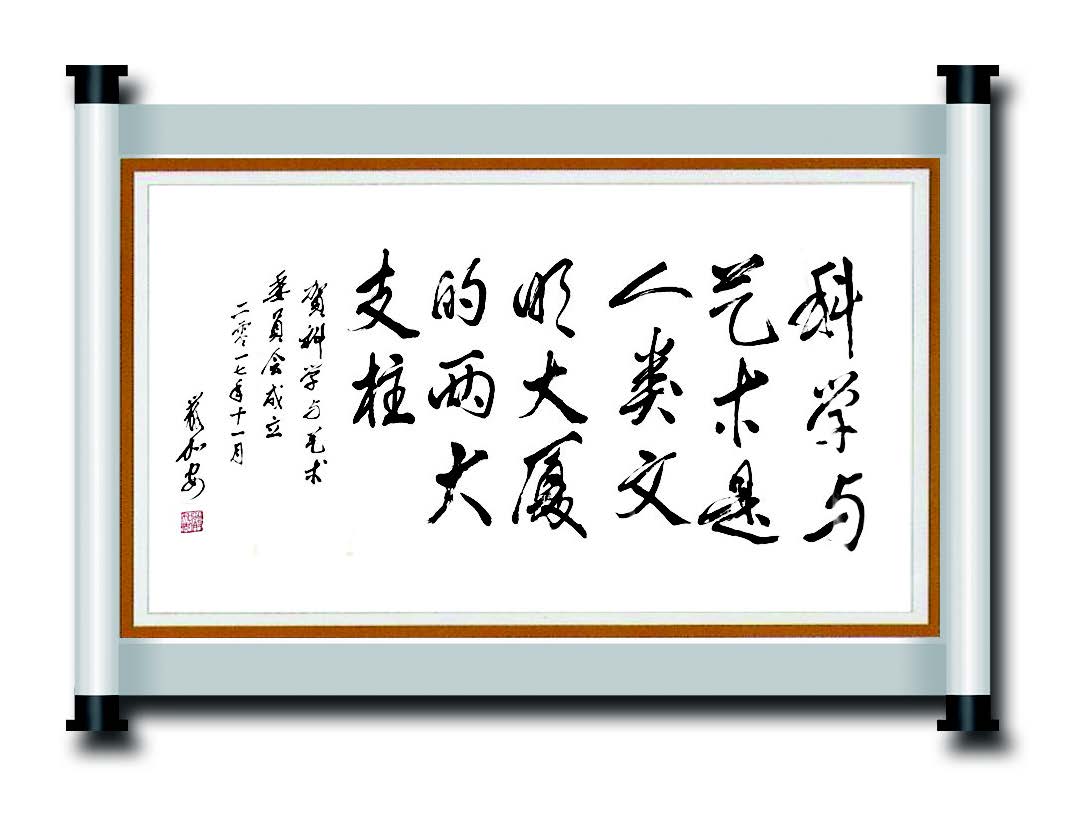 科学与
艺术是
人类文
明大厦
的两大
支柱
贺科学与艺术
委员会成立
二零一七年十一月
严加安